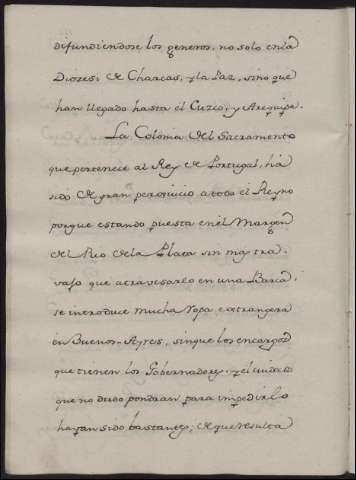 difundiendose los generos, no solo en la
Diozesi de Charcas, y la Paz, sino que
han llegado hasta el Cuzco, y Arequipa.
La Colonia del Sacramento
que pertenece al Rey de Portugal, ha
sido de gran perjuicio a todo el Reyno
porque estando puesta en el Margen
del Rio de la Plata sin mas tra-
vajo que atravesarlo en una Barca,
se introduce mucha Ropa extrangera
en Buenos-Ayres, sin que los encargos
que tienen los Gobernadores, y el cuidado
que no dudo pondran para impedirlo
hayan sido bastantes, de que resulta